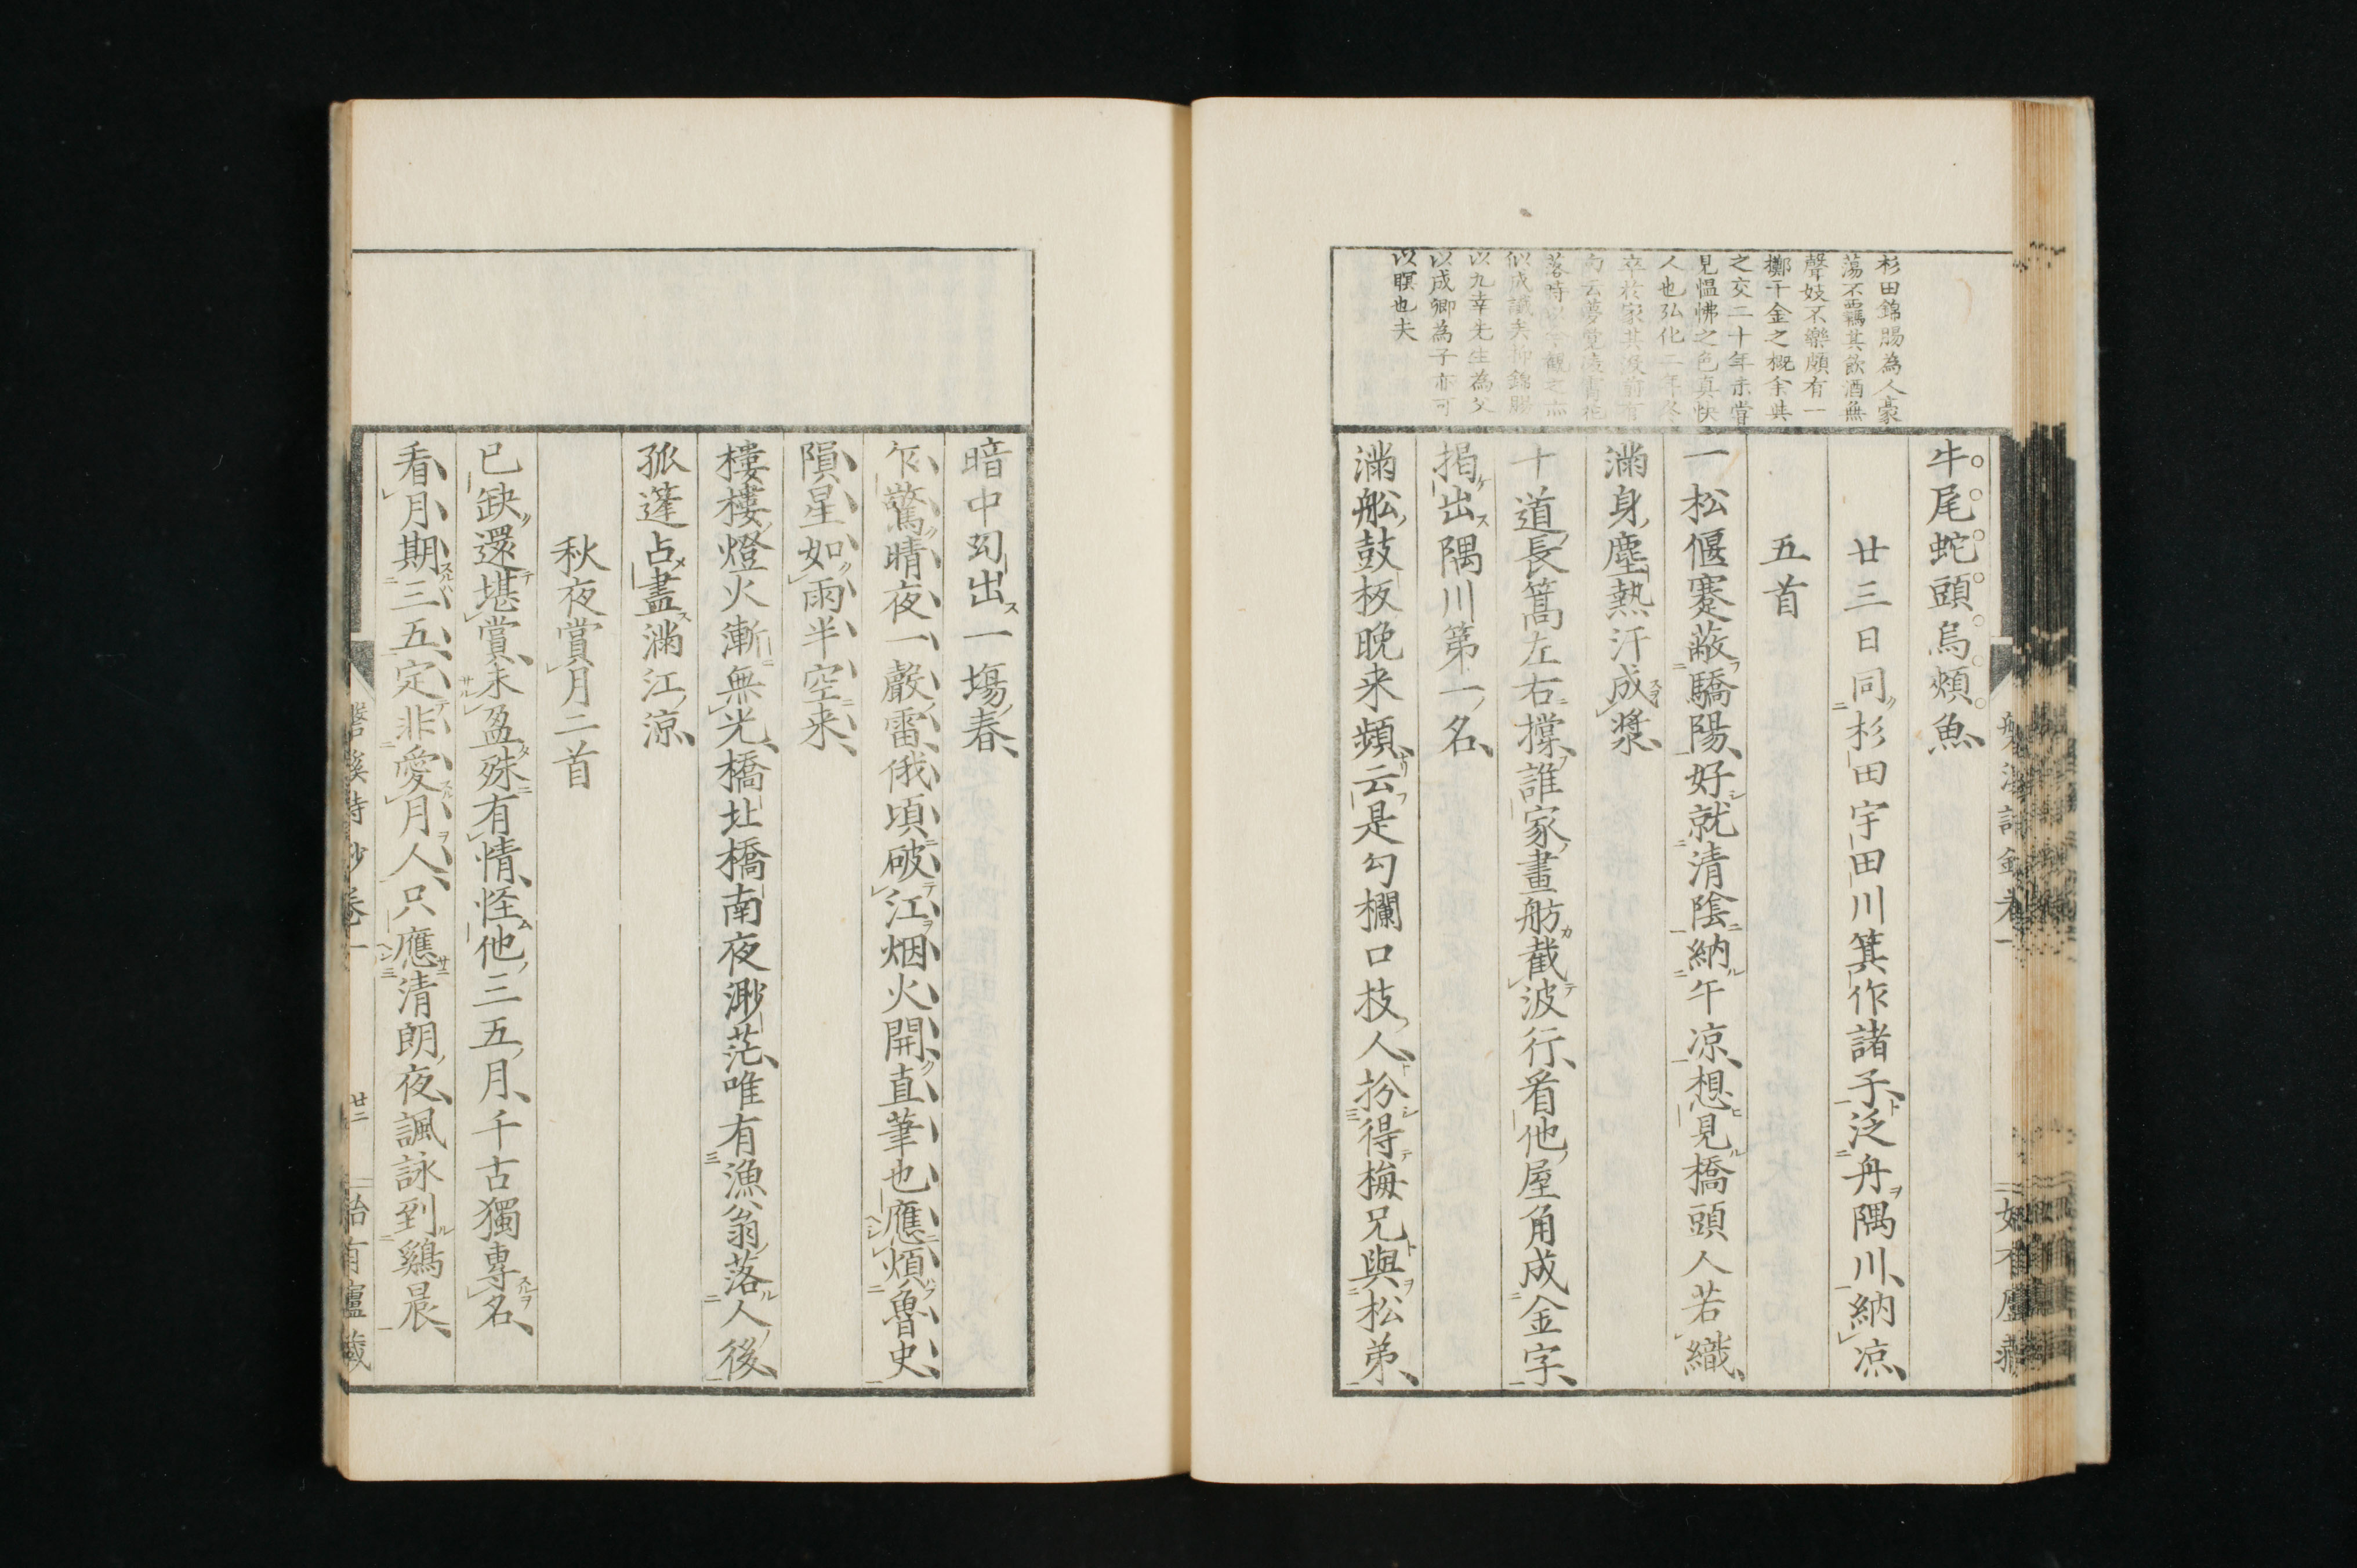 杉田錦賜為人豪
蕩不羈其飲酒無
聲妓不樂頗有一
擲千金之概余與
之交二十年未嘗
見慍怫之色真快
人也弘化二年冬
卒於家其沒前有
句云夢覚凌霄花
落時以今観之亦
似成讖矣抑錦賜
以九幸先生為父
以成卿為子亦可
以瞑也夫
牛尾蛇頭烏頰魚
廿三日同杉田宇田川箕作諸子泛舟隅川納凉
五首
一松偃蹇蔽驕陽好就清陰納午凉想見橋頭人若織
滿身塵熱汗成漿
十道長篙左右撐誰家畫舫截波行看他屋角成金字
掲出隅川第一名
滿舩鼓板晚来頻云是勾欄口技人扮得梅兄與松弟
暗中幻出一塲春
乍驚晴夜一聲雷俄頃破江烟火開直筆也應煩魯史
隕星如雨半空来
樓樓燈火漸無光橋北橋南夜渺茫唯有漁翁落人後
孤篷占盡滿江凉
秋夜賞月二首
已缺還堪賞未盈殊有情怪他三五月千古獨專名
看月期三五定非愛月人只應清朗夜諷詠到鷄晨
磐溪詩鈔卷一
廿二